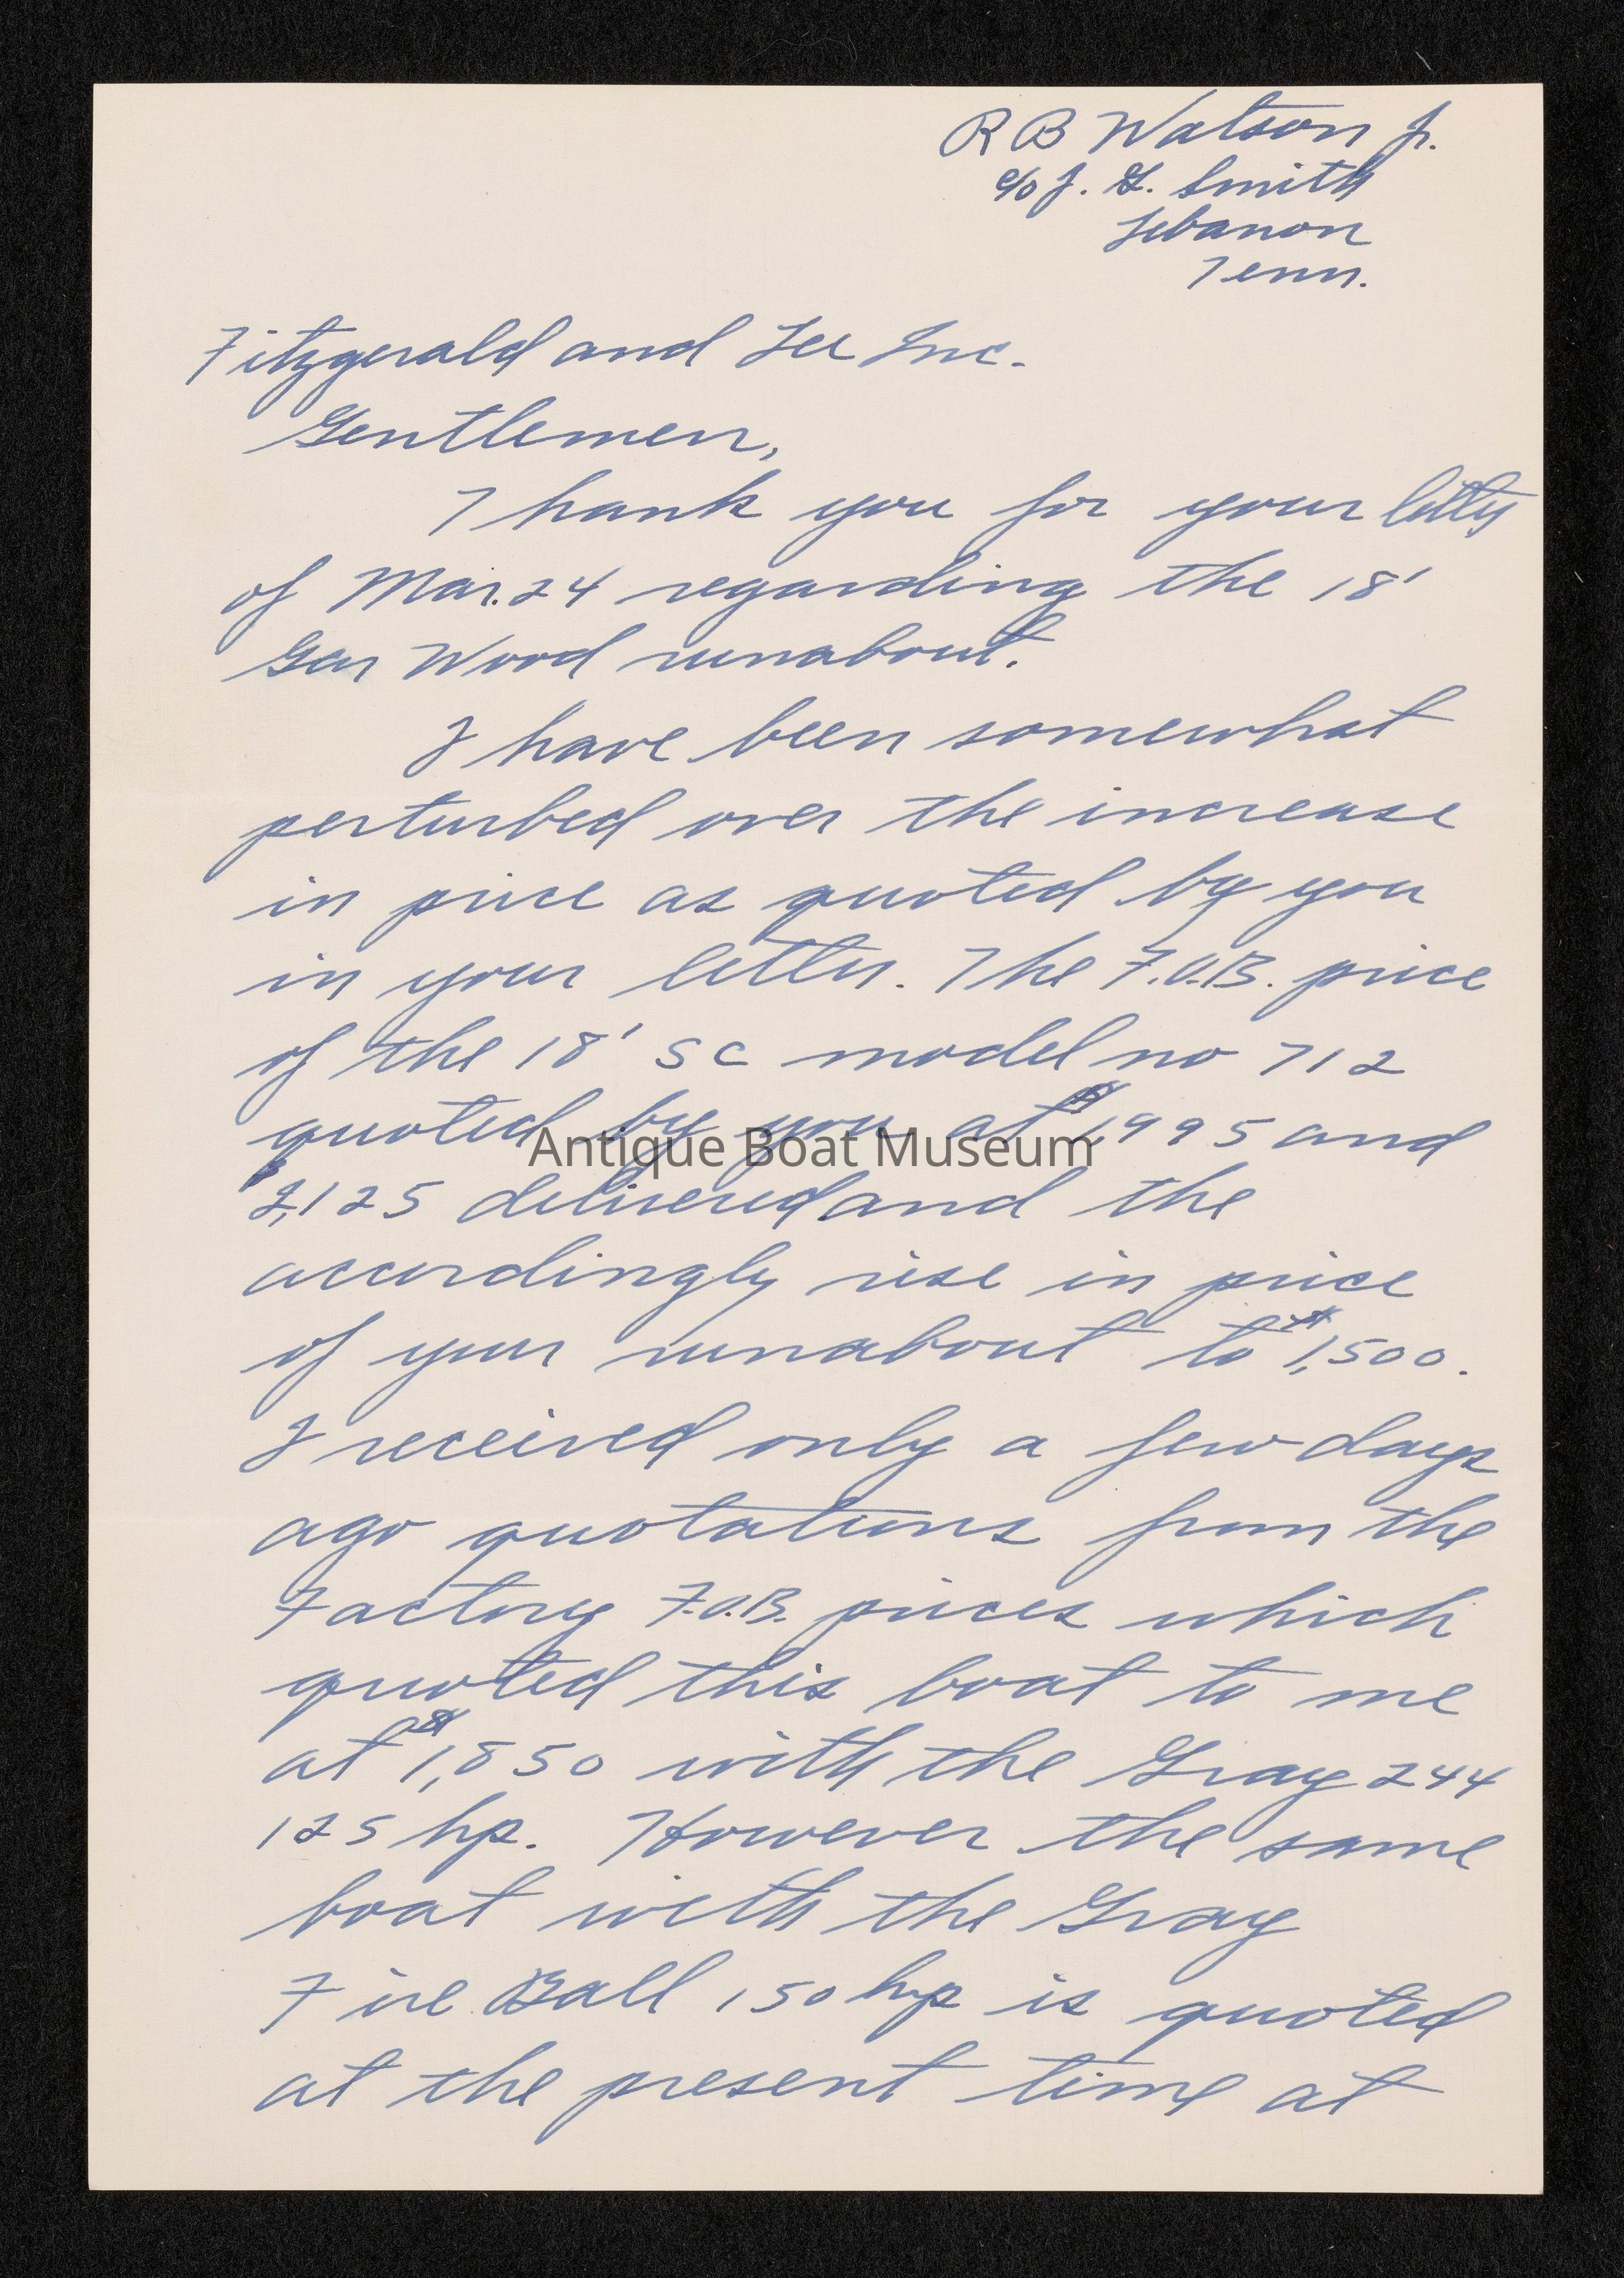 R B Watson Jr.
c/o J. G. Smith
Lebanon
Tenn.
Fitzgerald and Lee Inc.
Gentlemen,
Thank you for your letter
of Mar. 24 regarding the 18'
Gar Wood runabout.
I have been somewhat
perturbed over the increase
in price as quoted by you
in your letter. The F.O.B. price
of the 18' SC model no 712
quoted by you at $1,995 and
$2,125 delivered and the
accordingly rise in price
of your runabout to $1,500.
I received only a few days
ago quotations from the
Factory F.O.B. prices which
quoted this boat to me
at $1,850 with the Gray 244
125 hp. However the same
boat with the Gray
Fire Ball 150 hp is quoted
at the present time at
Antique Boat Museum